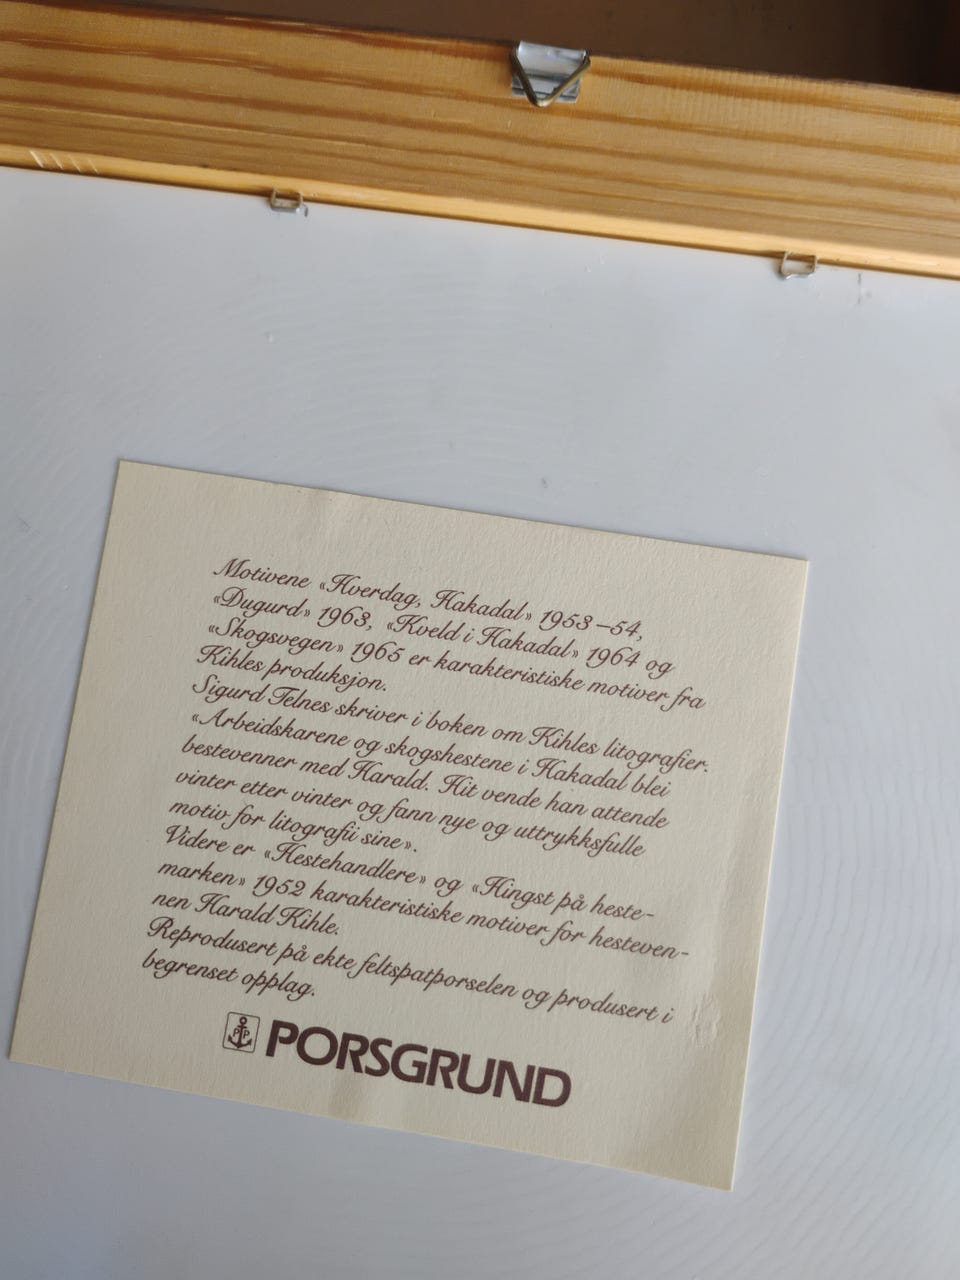 Motivene «Hverdag, Hakadal» 1953–54,
«Dugurd» 1963, «Kveld i Hakadal» 1964 og
«Skogsvegen» 1965 er karakteristiske motiver fra
Kihles produksjon.
Sigurd Telnes skriver i boken om Kihles litografier.
«Arbeidskarene og skogshestene i Hakadal blei
bestevenner med Harald. Hit vende han attende
vinter etter vinter og fann nye og uttrykksfulle
motiv for litografii sine».
Videre er «Hestehandlere» og «Hingst på heste-
marken» 1952 karakteristiske motiver for hesteven-
nen Harald Kihle.
Reprodusert på ekte feltspatporselen og produsert i
begrenset opplag.
PP PORSGRUND